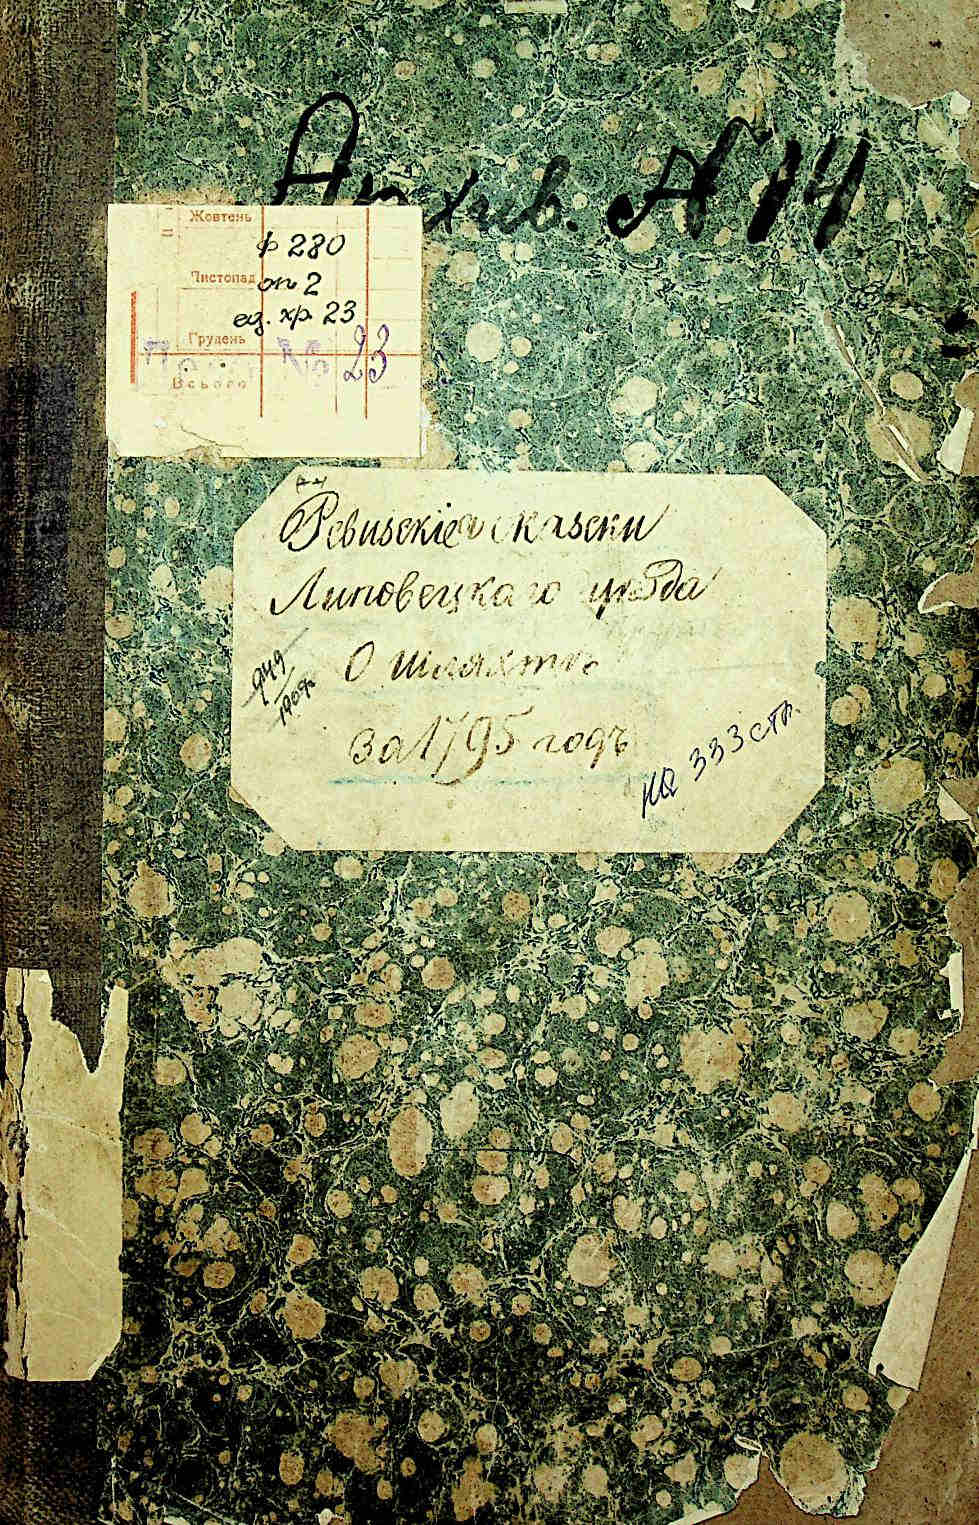 Архив. № 14
Жовтень
ф 280
Листопад оп 2
ед. хр. 23
Грудень
№ 23
Всього
Ревизскія сказки
Липовецкаго уѣзда
О шляхтѣ
за 1795 годъ
949
1909
на 333 стр.